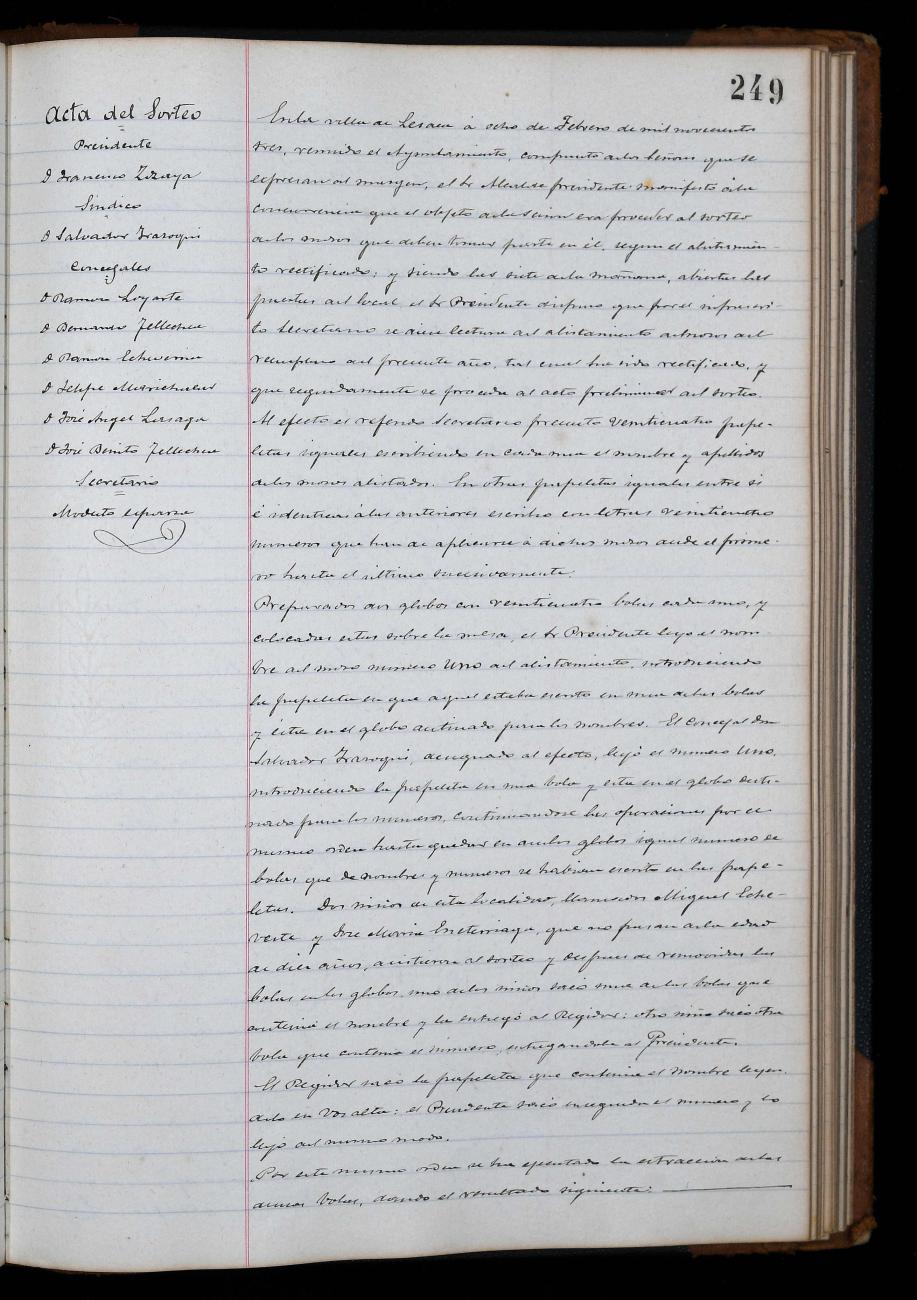 249
Acta del Sorteo
Presidente
D Francisco Zozaya
Sindico
D Salvador Irazoqui
Concejales
D Ramon Loyarte
D Bernardo Tellechea
D Ramon Echeverria
D Felipe Marichalar
D José Angel Lasaga
D José Benito Tellechea
Secretario
Modesto Esparza
En la villa de Lesaca à ocho de Febrero de mil novecientos
tres, reunido el Ayuntamiento, compuesto de los Señores que se
espresan al margen, el Sr Alcalde presidente manifestó à la
concurrencia que el objeto de la sesion era proceder al sorteo
de los mozos que deben tomar parte en él, segun el alistamien-
to rectificado; y siendo las siete de la mañana, abiertas las
puertas del local el Sr Presidente dispuso que por el infrascri-
to Secretario se diese lectura del alistamiento de mozos del
reemplazo del presente año, tal cual ha sido rectificado, y
que seguidamente se proceda al acto preliminar del sorteo.
Al efecto el referido Secretario presentó veinticuatro pape-
letas iguales escribiendo en cada una el nombre y apellidos
de los mozos alistados. En otras papeletas iguales entre si
é identicas à las anteriores escribio con letras veinticuatro
numeros que han de aplicarse à dichos mozos desde el prime-
ro hasta el último sucesivamente.
Preparados dos globos con veinticuatro bolas cada uno, y
colocadas estas sobre la mesa, el Sr Presidente leyó el nom
bre del mozo numero Uno del alistamiento, introduciendo
la papeleta en que aquel estaba escrito en una de las bolas
y ésta en el globo destinado para los nombres. El concejal don
Salvador Irazoqui, designado al efecto, leyó el numero Uno,
introduciendo la papeleta en una bola y esta en el globo desti-
nado para los numeros, continuandose las operaciones por el
mismo orden hasta quedar en ambos globos igual numero de
bolas que de nombres y numeros se habian escrito en las pape-
letas. Dos niños de esta localidad, llamados Miguel Eche-
verte y José Maria, que no pasan de la edad
de diez años, asistieron al sorteo y despues de removidas las
bolas en los globos, uno de los niños sacó una de las bolas que
contenia el nombre y la entregó al Regidor: otro niño sacó otra
bola que contenia el número, entregandola al Presidente.
El Regidor sacó la papeleta que contenia el nombre leyen-
dolo en voz alta: el Presidente sacó enseguida el numero y lo
leyó del mismo modo.
Por este mismo orden se ha ejecutado la estraccion de las
demas bolas, dando el resultado siguiente: